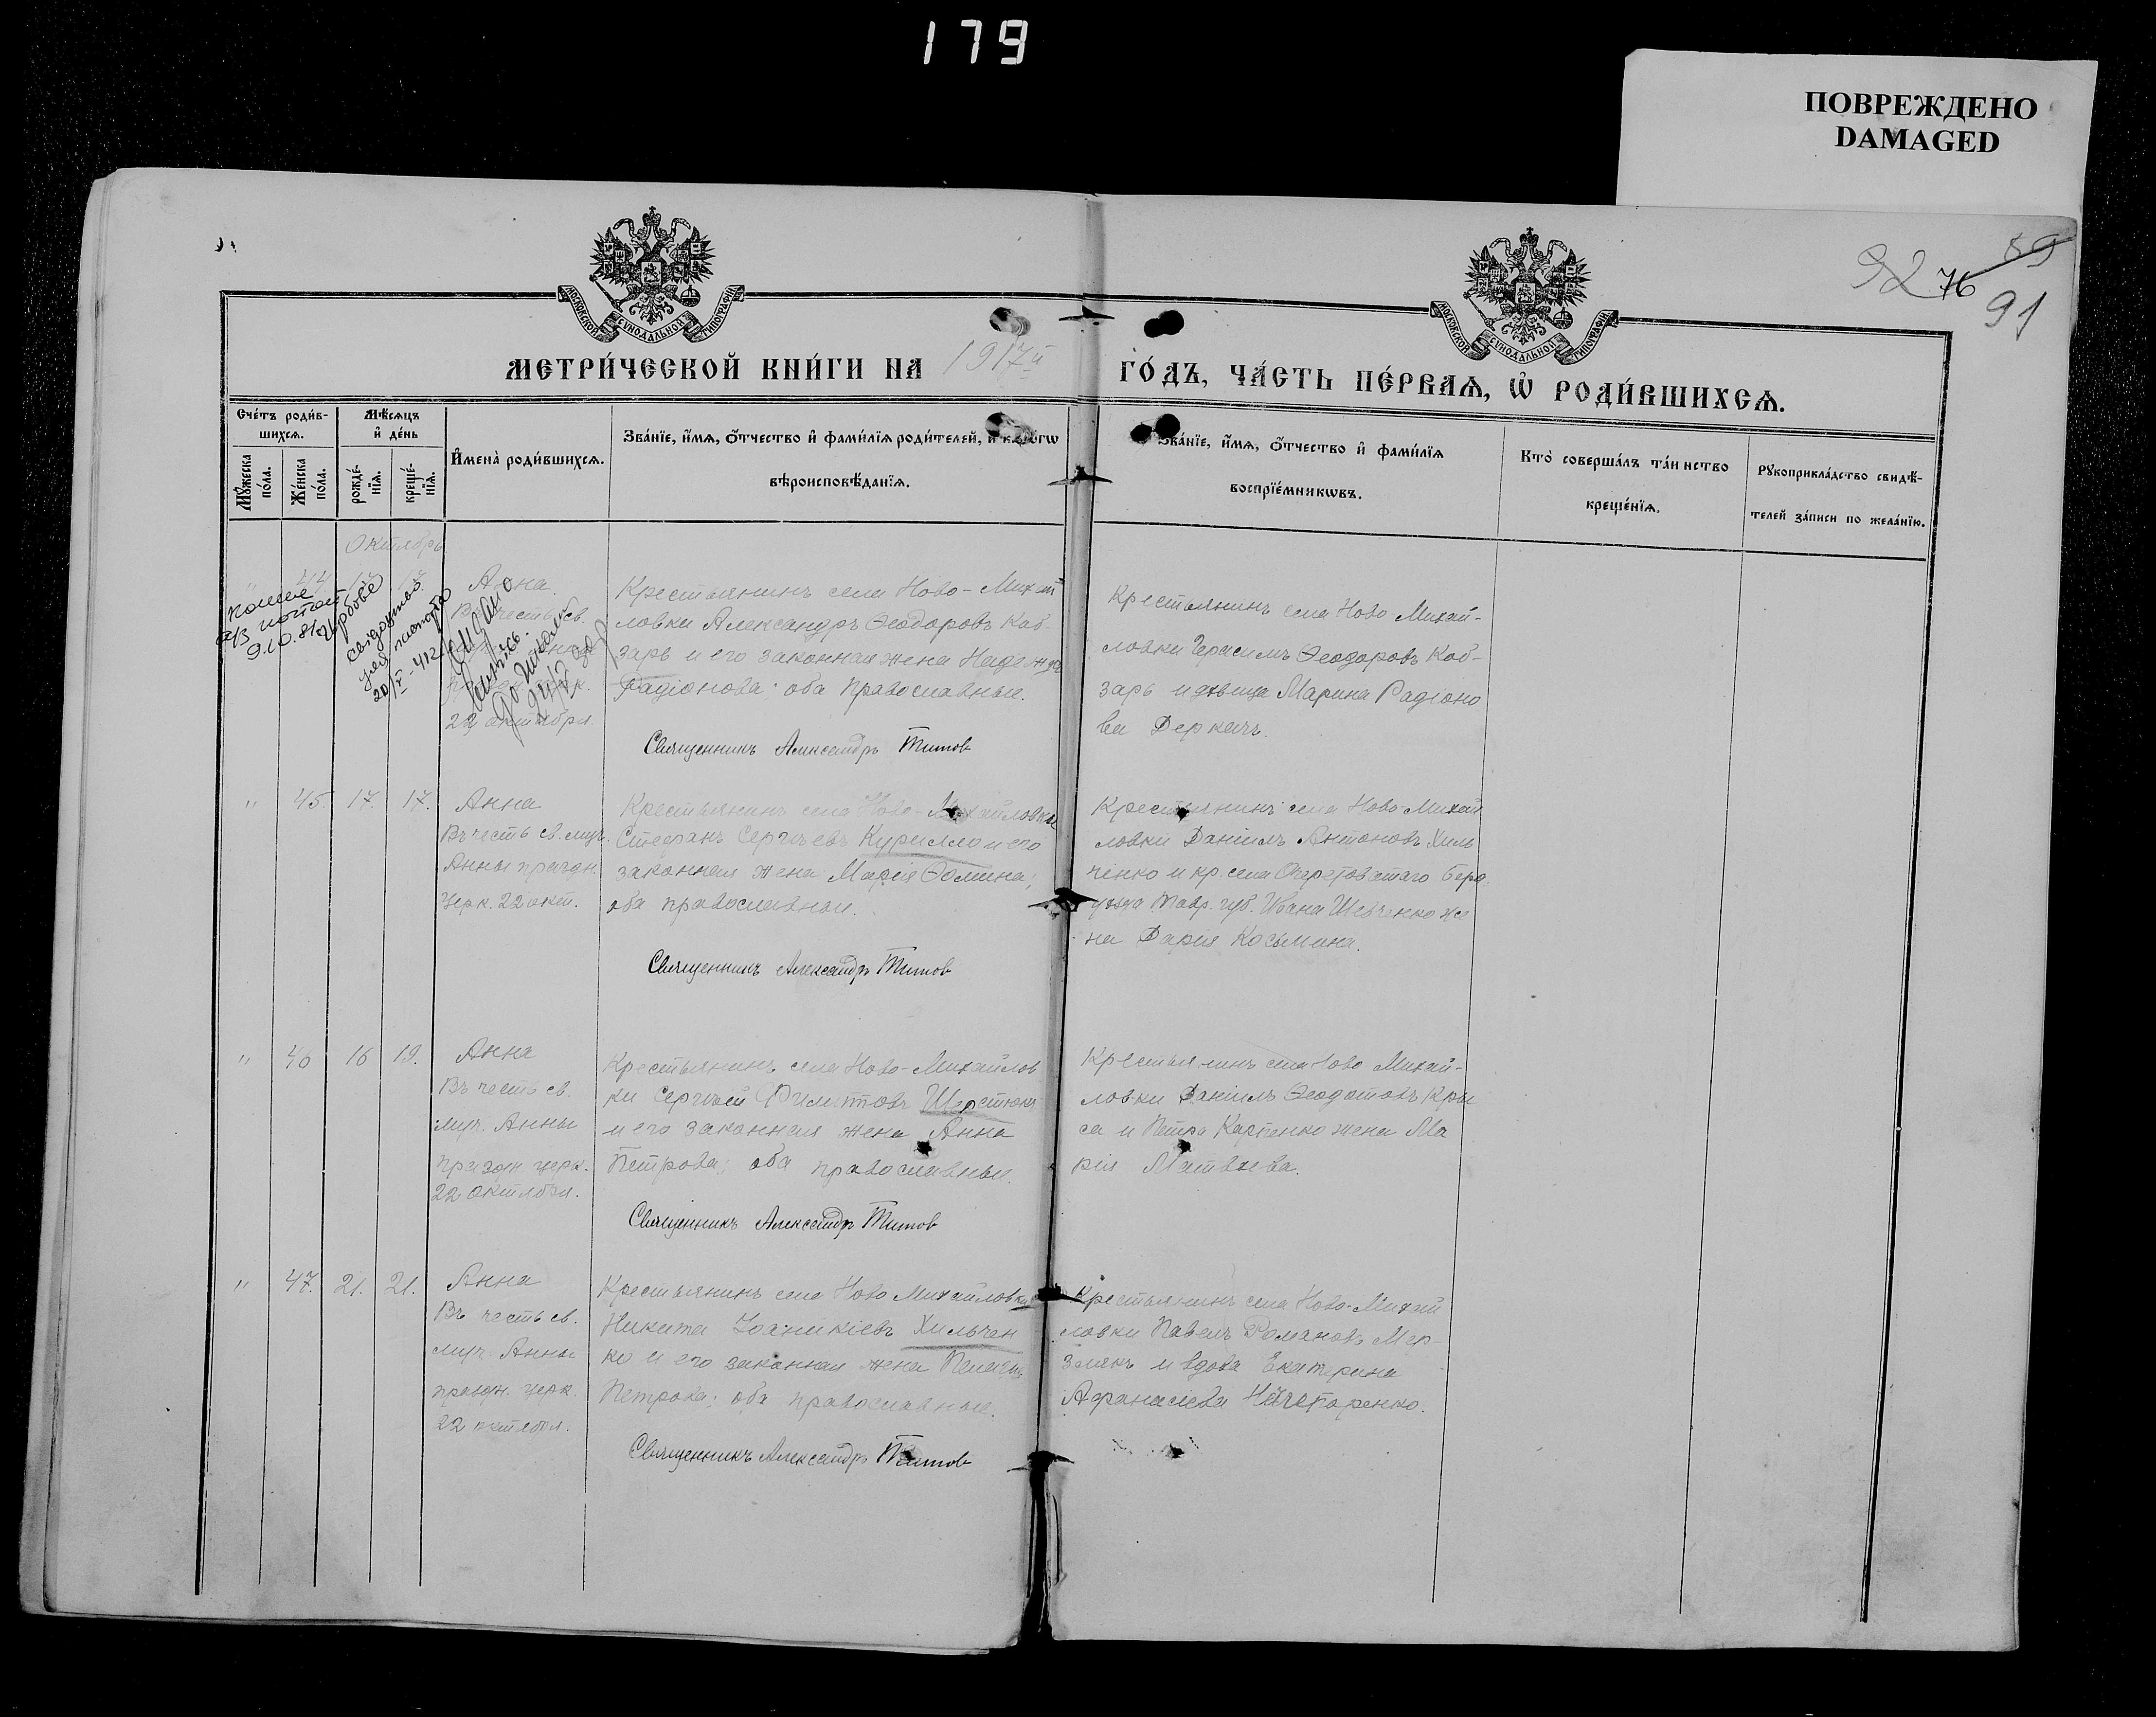 179
ПОВРЕЖДЕНО
DAMAGED
92 76 89
91
МОСКОВСКОЙ СѴНОДАЛЬНОЙ ТИПОГРАФІИ
МОСКОВСКОЙ СѴНОДАЛЬНОЙ ТИПОГРАФІИ
МЕТРИ́ЧЕСКОЙ КНИ́ГИ НА 1917й ГО́ДЪ, ЧА́СТЬ ПЕ́РВАѦ, Ѿ РОДИ́ВШИХСѦ.
Сче́тъ роди́в-
шихсѧ.
Мꙋ́жеска
по́ла.
Же́нска
по́ла.
Мѣ́сѧцъ
и҆ де́нь
рожде́-
нїѧ.
креще́-
нїѧ.
И҆мена̀ роди́вшихсѧ.
Зва́нїе, и҆́мѧ, ѻ҆́тчество и҆ фами́лїѧ роди́телей, и҆ како́гѡ
вѣроисповѣ́данїѧ.
Зва́нїе, и҆́мѧ, ѻ҆́тчество и҆ фами́лїѧ
воспрїе́мникѡвъ.
Кто̀ соверша́лъ та́инство
креще́нїѧ.
Рꙋкоприкла́дство свидѣ́-
телей за́писи по жела́нїю.
Октябрь
" 44 17 17
Анна
22 октября.
Крестьянинъ села Ново-Михай
ловки Александръ Ѳеодоровъ Коб-
зарь и его законная жена Надежда
Радіонова; оба православные.
Священникъ Александръ Титов
Крестьянинъ села Ново Михай-
ловки Герасимъ Ѳеодоровъ Коб-
зарь и дѣвица Марина Радіоно
ва Деркачъ.
" 45. 17. 17.
Анна
Въ честь св. муч.
Анны праздн.
церк. 22 окт.
Крестьянинъ села Ново-Михайловки
Стефанъ Сергѣевъ Курилло и его
законная жена Марія Ѳомина;
оба православные.
Священникъ Александръ Титов
Крестьянинъ села Ново-Михай
ловки Даніилъ Антоновъ Хиль
ченко и кр. села Очеретоватаго Берд.
уѣзда Тавр. губ. Ивана Шевченко же
на Дарія Косьмина.
" 46 16 19.
Анна
Въ честь св.
муч. Анны
праздн. церк.
22 октября.
Крестьянинъ села Ново-Михайлов
ки Сергѣй Филипповъ Шерстюкъ
и его законная жена Анна
Петрова; оба православные.
Священникъ Александръ Титов
Крестьянинъ села Ново Михай-
ловки Даніилъ Ѳеодотовъ Кры
са и Петра Карпенко жена Ма
рія Матвѣева.
" 47. 21. 21.
Анна
Въ честь св.
муч. Анны
праздн. церк.
22 октября.
Крестьянинъ села Ново Михайловки
Никита Іоаникіевъ Хильчен
ко и его законная жена Пелагія
Петрова; оба православные.
Священникъ Александръ Титов
Крестьянинъ села Ново-Михай
ловки Павелъ Романовъ Мер-
злякъ и вдова Екатерина
Афанасіева Нечепоренко.